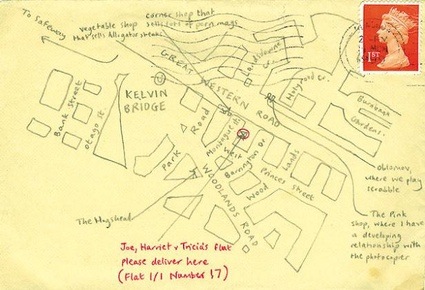 To Safeway
corner shop that
sells lots of porn mags
vegetable shop
that sells Alligator steaks
GREAT WESTERN ROAD
Lansdowne
Cr.
Holyrood Cr.
Burnbank
Gardens
1ST
KELVIN
BRIDGE
Bank Street
Otago St
Park
Road
Montague St
West
Barrington Dr
Lands
Wood
Princes Street
WOODLANDS ROAD
Oblomov,
where we play
scrabble
The Pink
shop, where I have
a developing
relationship with
the photocopier
The Hugshead
Joe, Harriet & Tricia's flat
please deliver here
(Flat 1/1 Number 17)